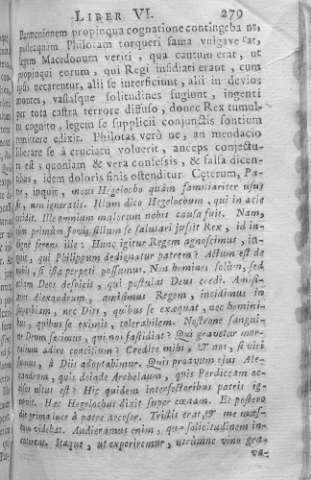 LIBER VI. 279
Parmenionem propinqua cognatione contingebant,
postquam Philotam torqueri fama vulgaverat,
legem Macedonum veriti, qua cautum erat, ut
propinqui eorum, qui Regi insidiati erant, cum
ipsis necarentur, alii se interficiunt, alii in devios
montes, vastasque solitudines fugiunt, ingenti
per tota castra terrore diffuso, donec Rex tumultu
cognito, legem se supplicii conjunctis sontium
remittere edixit. Philotas verò ne, an mendacio
liberare se à cruciatu voluerit, anceps conjectura
est; quoniam & vera confessis, & falsa dicentibus,
idem doloris finis ostenditur. Cęterum, Pater,
inquit, meus Hegelocho quàm familiariter usus
sit, non ignoratis. Illum dico Hegelochum, qui in acie
cecidit. Ille omnium malorum nobis causa fuit. Nam,
cum primùm Jovis filium se salutari jussit Rex, id indignè
ferens ille: Hunc igitur Regem agnoscimus, inquit,
qui Philippum dedignatur patrem? Actum est de
nobis, si ista perpeti possumus. Non homines solùm, sed
etiam Deos despicit, qui postulat Deus credi. Amisimus
Alexandrum, amisimus Regem, incidimus in
superbiam, nec Diis, quibus se exæquat, nec hominibus,
quibus se eximit, tolerabilem. Nostrone sanguine
Deum fecimus, qui nos fastidiat? Qui gravetur mortalium
adire concilium? Credite mihi, & nos, si viri
sumus, à Diis adoptabimur. Quis proavum ejus Alexandrum,
quis deinde Archelaum, quis Perdiccam occisos
ultus est? Hic quidem interfectoribus patris ignovit.
Hæc Hegelochus dixit super cœnam. Et postero
die prima luce à patre accersor. Tristis erat, & me mæstum
videbat. Audieramus enim, quæ solicitudinem incuterent.
Itaque, ut experiremur, utrùmne vino gra-
va-